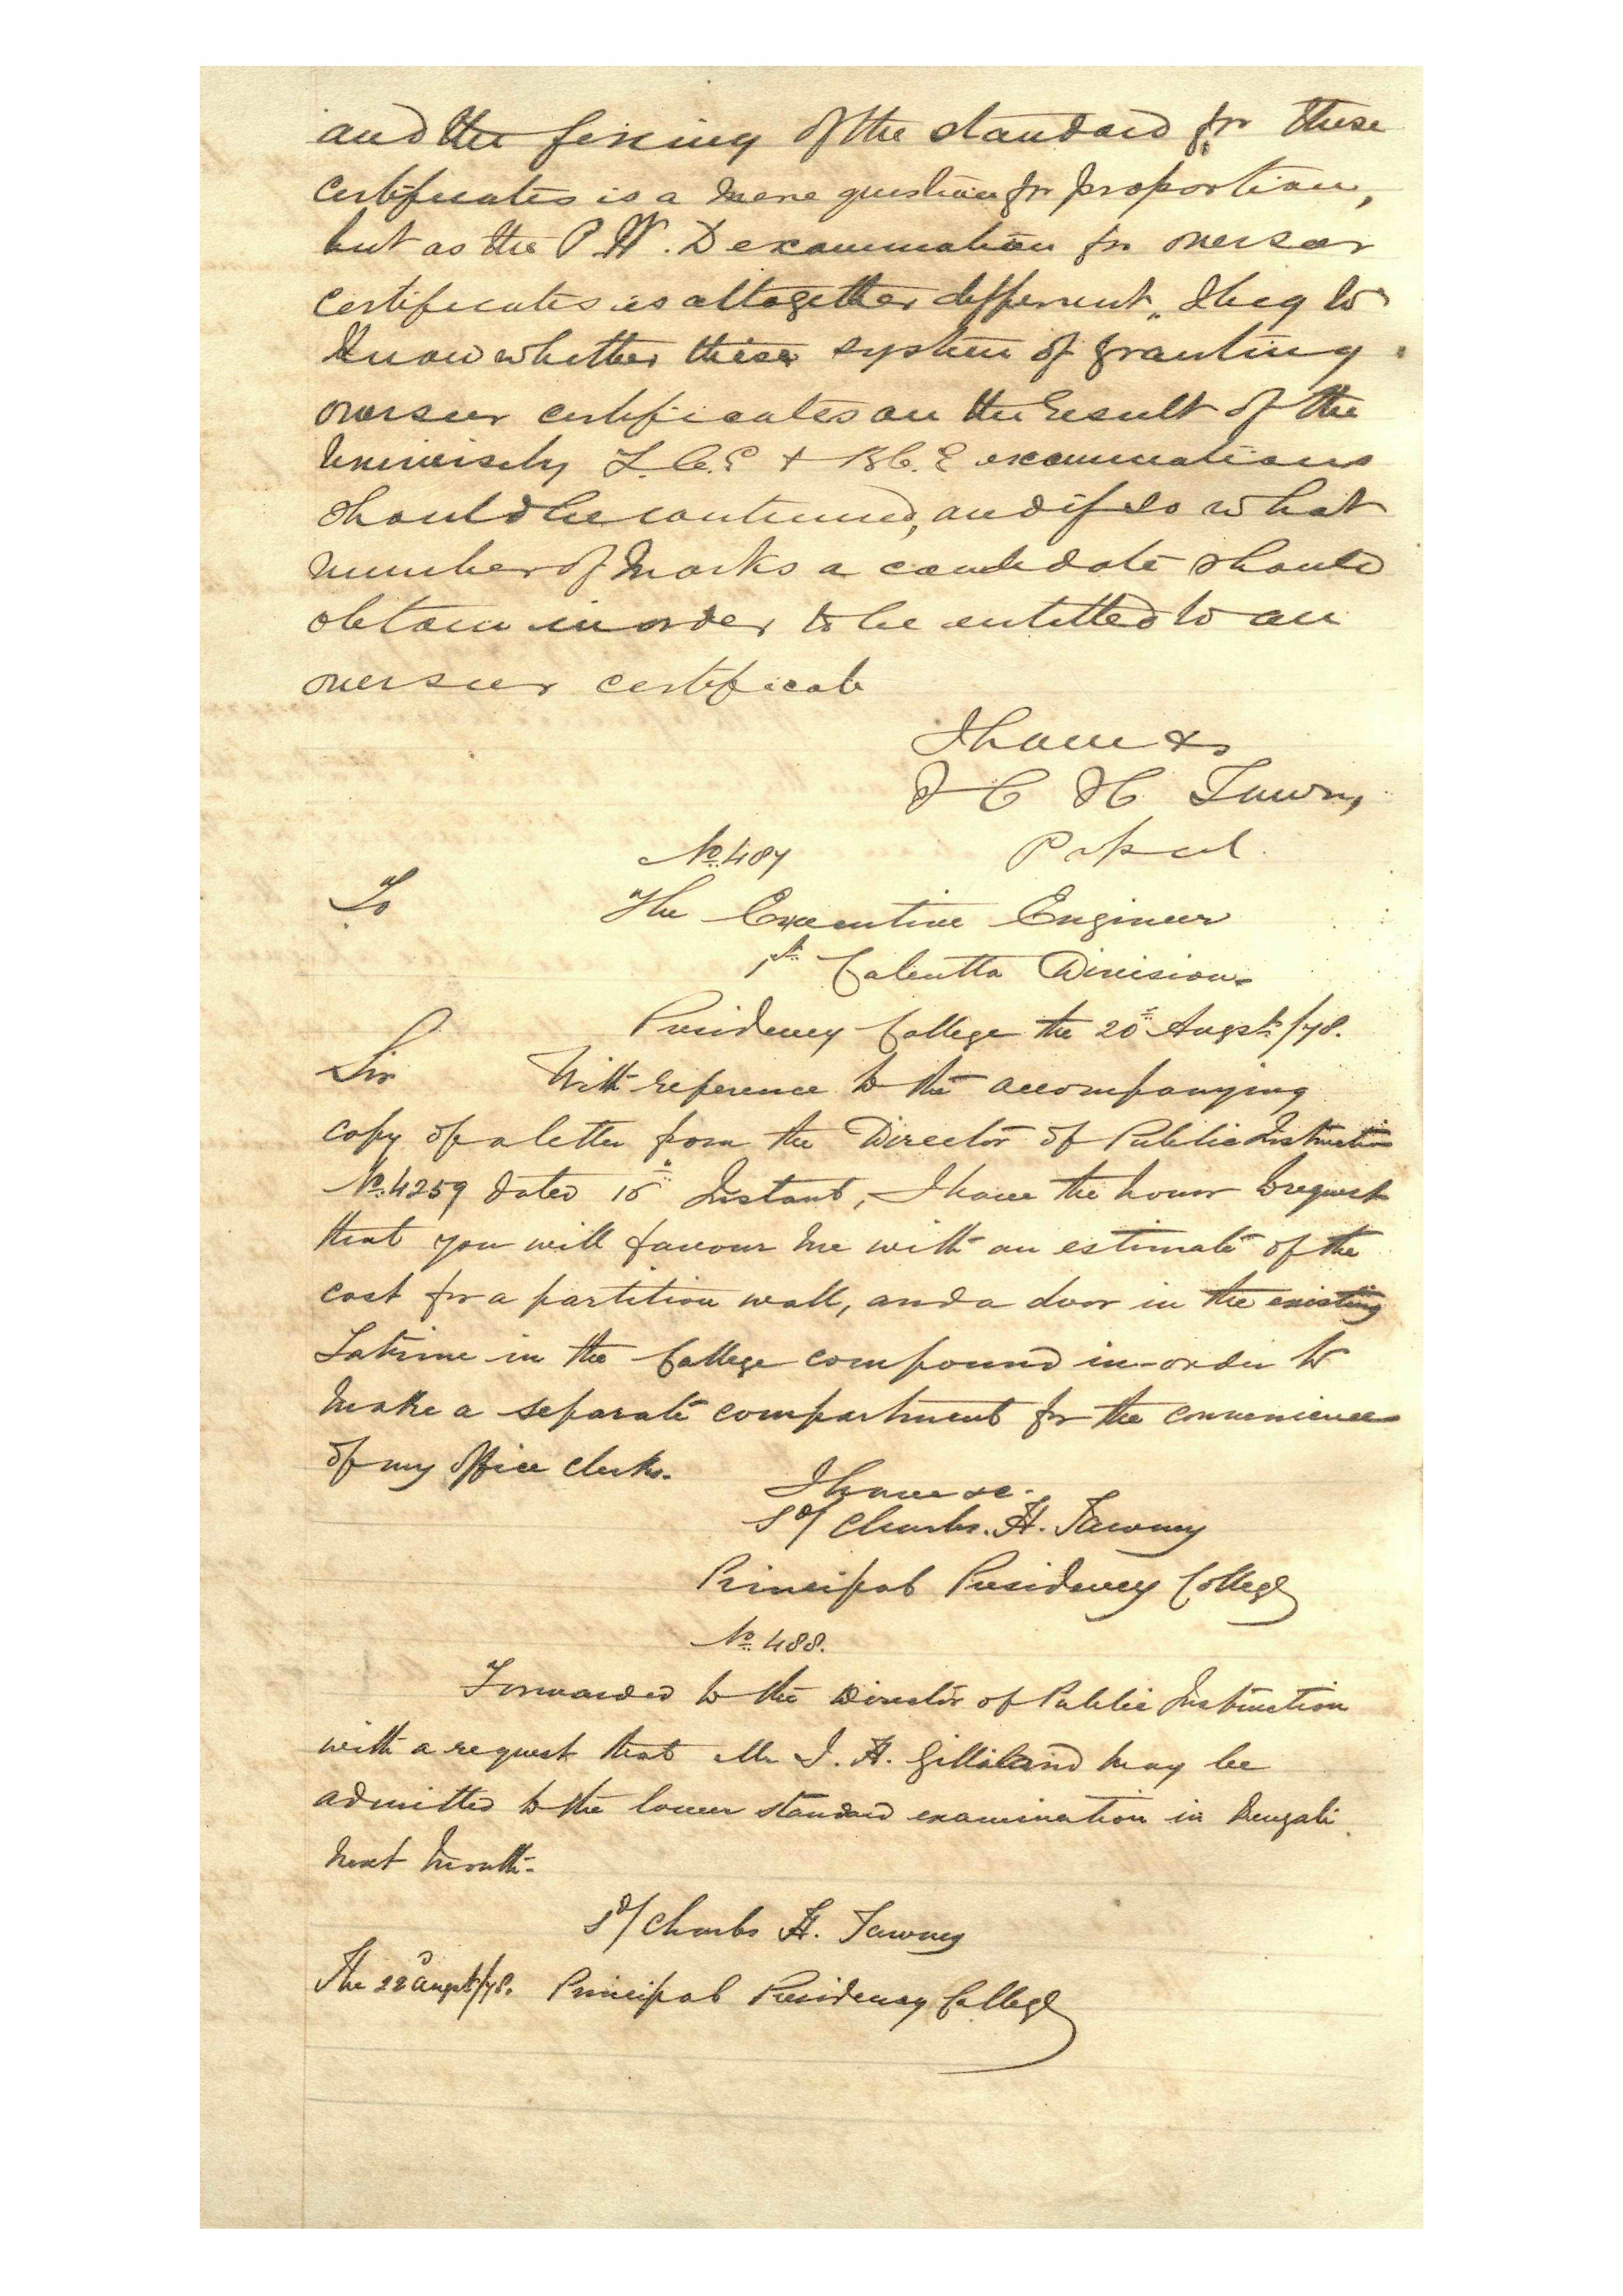 and the fixing of the standard for these
certificates is a mere question for proportion,
but as the P. W. D examination for overseer
certificates is altogether different, I beg to
know whether these system of granting
overseer certificates on the result of the
University L.C.E & B.C.E examinations
should be continued, and if so what
number of marks a candidate should
obtain in order to be entitled to an
overseer certificate
I have &c
C H Tawney
No. 487
To The Executive Engineer
1st Calcutta Division.
Presidency College the 20th Augst/78.
Sir With reference to the accompanying
copy of a letter from the Director of Public Instruction
No. 4259 dated Instant, I have the honor to request
that you will favour me with an estimate of the
cost for a partition wall, and a door in the existing
Latrine in the College compound in-order to
make a separate compartment for the convenience
of my office clerks.
I have &c.
Sd/ Charles. H. Tawney
Principal Presidency College
No. 488.
Forwarded to the Director of Public Instruction
with a request that Mr I. H. Gilliland may be
admitted to the lower standard examination in Bengali
next month.
Sd/ Charles H. Tawney
The 22d Augst/78. Principal Presidency College